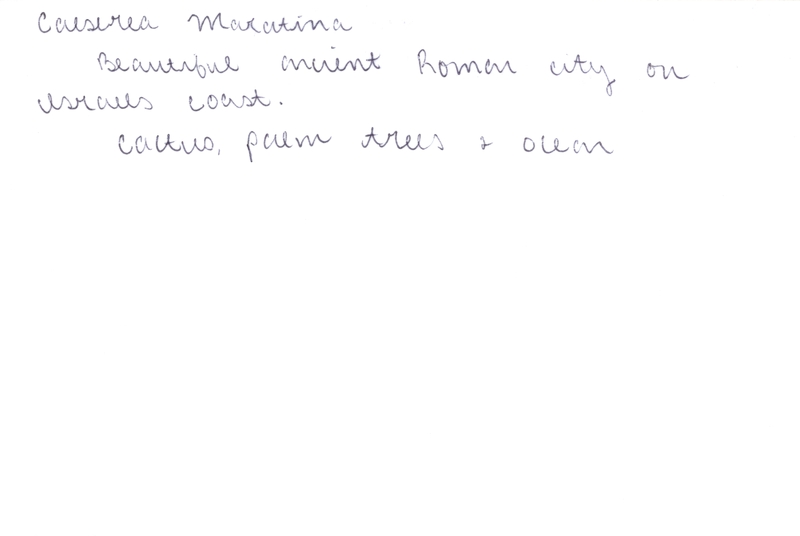 Caeserea Maratina
Beautiful ancient Roman city on
Israels coast.
Cactus, palm trees & ocean